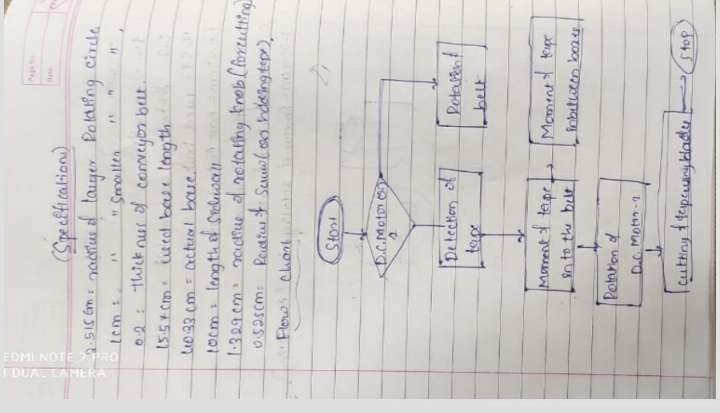 (Specifications)
2.515 cm = radius of larger Rotating circle
1cm = " " smaller " " ",
0.2 = thickness of conveyor belt.
15.57 cm = used base length
40.33 cm = actual base.
10cm = length of
1.329 cm = radius of rotating knob (for cutting)
0.525cm = Radius of Screw (on holding tape)
Flow chart
Start
D.C. Motor on
?
Detection of
tape
Rotation of
belt
Moment of tape
on to the belt
Moment of tape
inbetween boxes
Rotation of
D.C. Motor-2
Cutting of tape using blade
Stop
REDMI NOTE 7 PRO
DUAL CAMERA